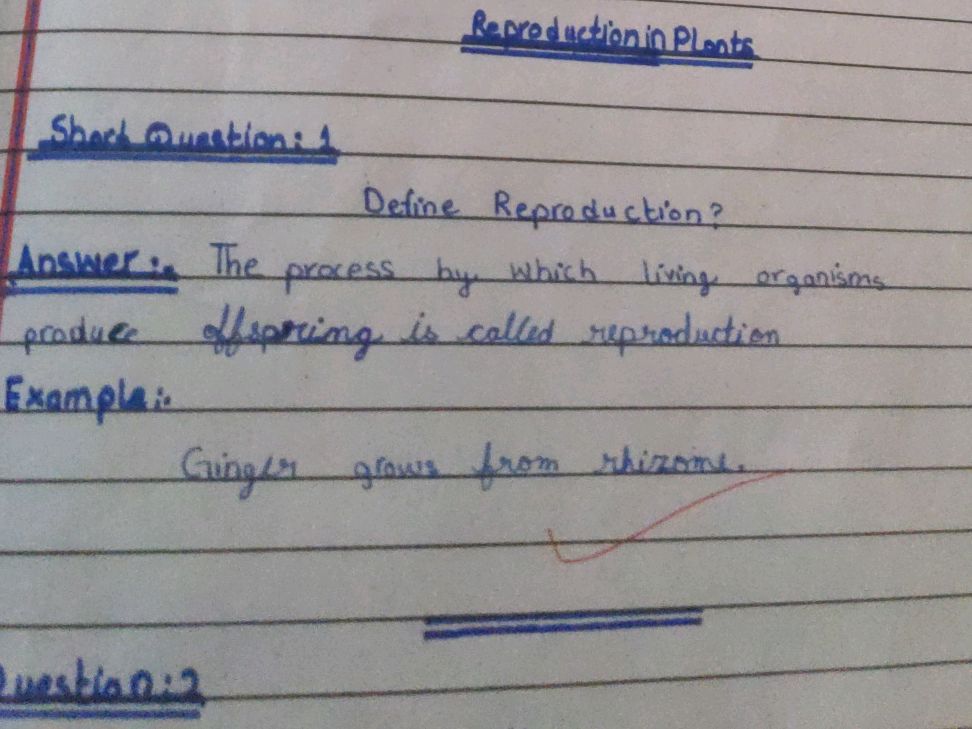 Reproduction in Plants
Short Question: 1
Define Reproduction?
Answer:- The process by which living organisms
produce offspring is called reproduction
Example:-
Ginger grows from rhizome.
Question: 2